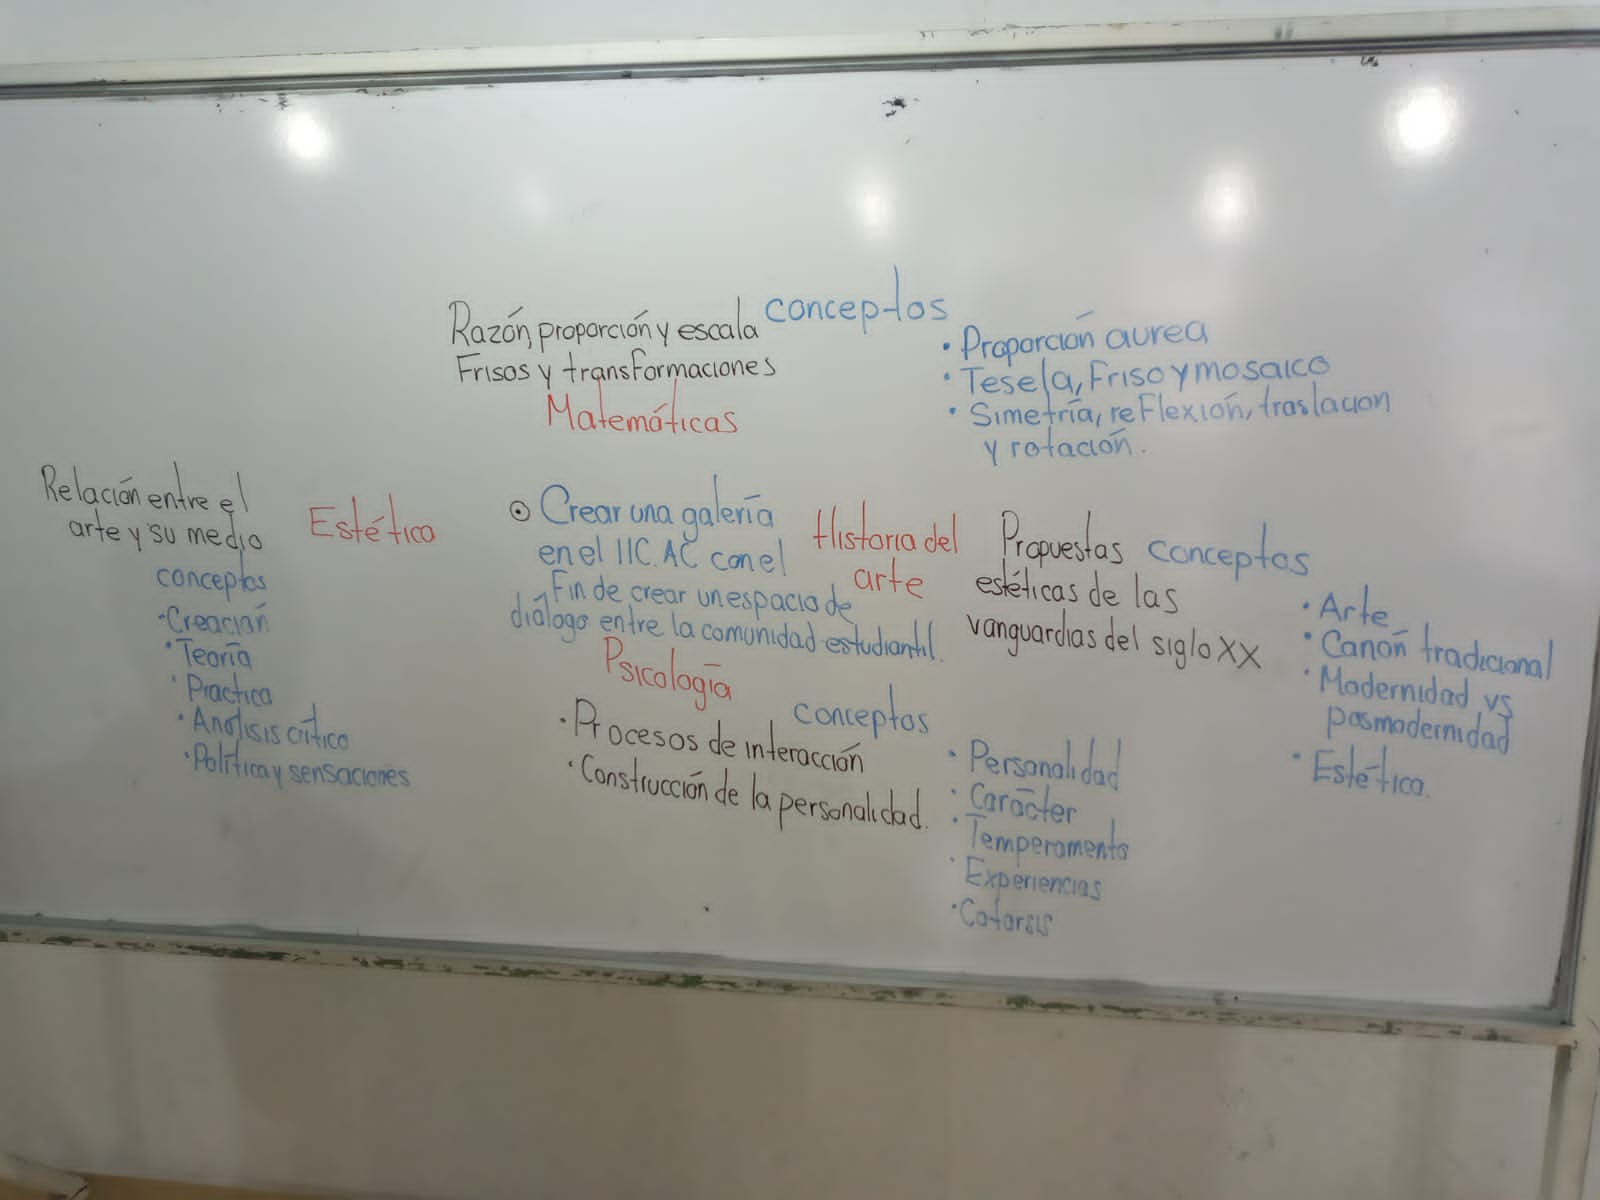 Razón, proporción y escala
Frisos y transformaciones
Matemáticas
conceptos
• Proporción aurea
• Tesela, Friso y mosaico
• Simetría, reflexión, traslacion
y rotación.
Relación entre el
arte y su medio
Estético
conceptos
• Creación
• Teoría
• Practica
• Análisis crítico
• Política y sensaciones
⊙ Crear una galería
en el IIC. AC con el
Fin de crear un espacio de
diálogo entre la comunidad estudiantil.
Historia del
arte
Propuestas
estéticas de las
vanguardias del siglo XX
conceptos
• Arte
• Canon tradicional
• Modernidad vs
posmodernidad
• Estética.
Psicología
• Procesos de interacción
• Construcción de la personalidad.
conceptos
• Personalidad
• Carácter
• Temperamento
• Experiencias
• Catarsis